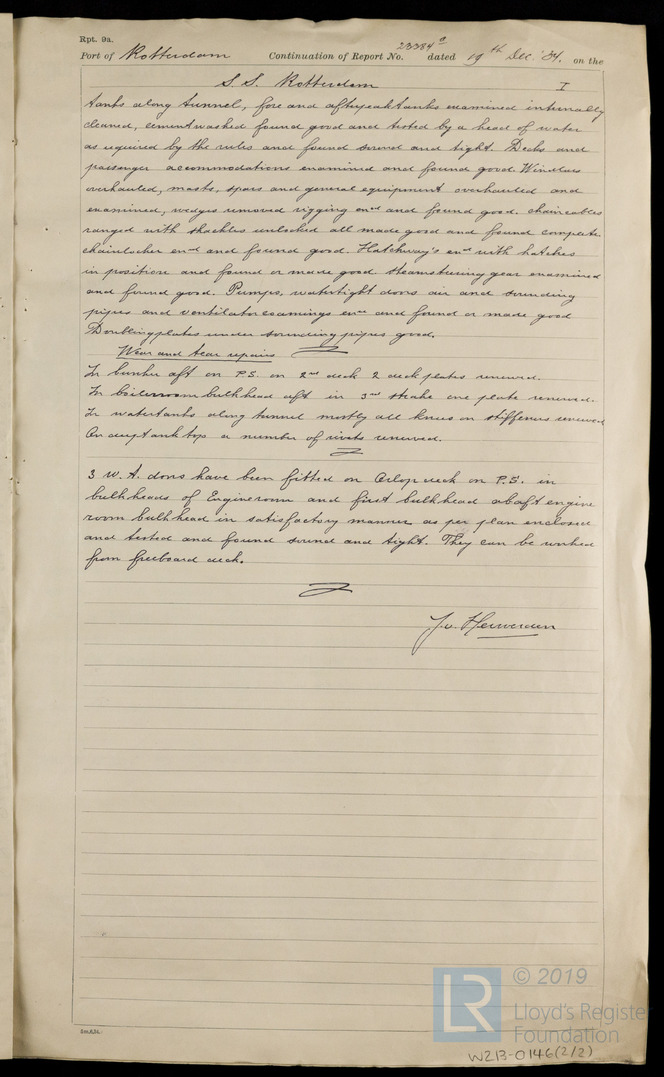 Rpt. 9a.
Port of Rotterdam Continuation of Report No. 23384a dated 19th Dec. '34. on the
S.S. Rotterdam I
tanks along tunnel, fore and afterpeaktanks examined internally
cleaned, cementwashed found good and tested by a head of water
as required by the rules and found sound and tight. Decks and
passenger accommodations examined and found good. Windlass
overhauled, masts, spars and general equipment overhauled and
examined, wedges removed rigging exnd and found good. chaincables
ranged with shackles unlocked all made good and found complete
chainlocker exnd and found good. Hatchway's exnd with hatches
in position and found or made good steamsteeringgear examined
and found good. Pumps, watertight doors air and sounding
pipes and ventilatorcoamings exnd and found or made good
Doublingplates under soundingpipes good.
Wear and tear repairs
In bunker aft on P.S. on 2nd deck 2 deckplates renewed.
In boilerroombulkhead aft in 3rd strake one plate renewed.
In watertanks along tunnel mostly all knees on stiffeners renewed
On deeptanktop a number of rivets renewed.
3 W.T. doors have been fitted on Orlopdeck on P.S. in
bulkheads of Engineroom and first bulkhead abaft engine
room bulkhead in satisfactory manner as per plan enclosed
and tested and found sound and tight. They can be worked
from freeboard deck.
J. v. Herwerden
5m.6.34.
LR © 2019
Lloyd's Register
Foundation
W213-0146(2/2)